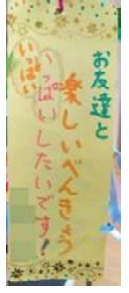 お友達と
楽しいべんきょう
いっぱいしたいです!
いっぱい